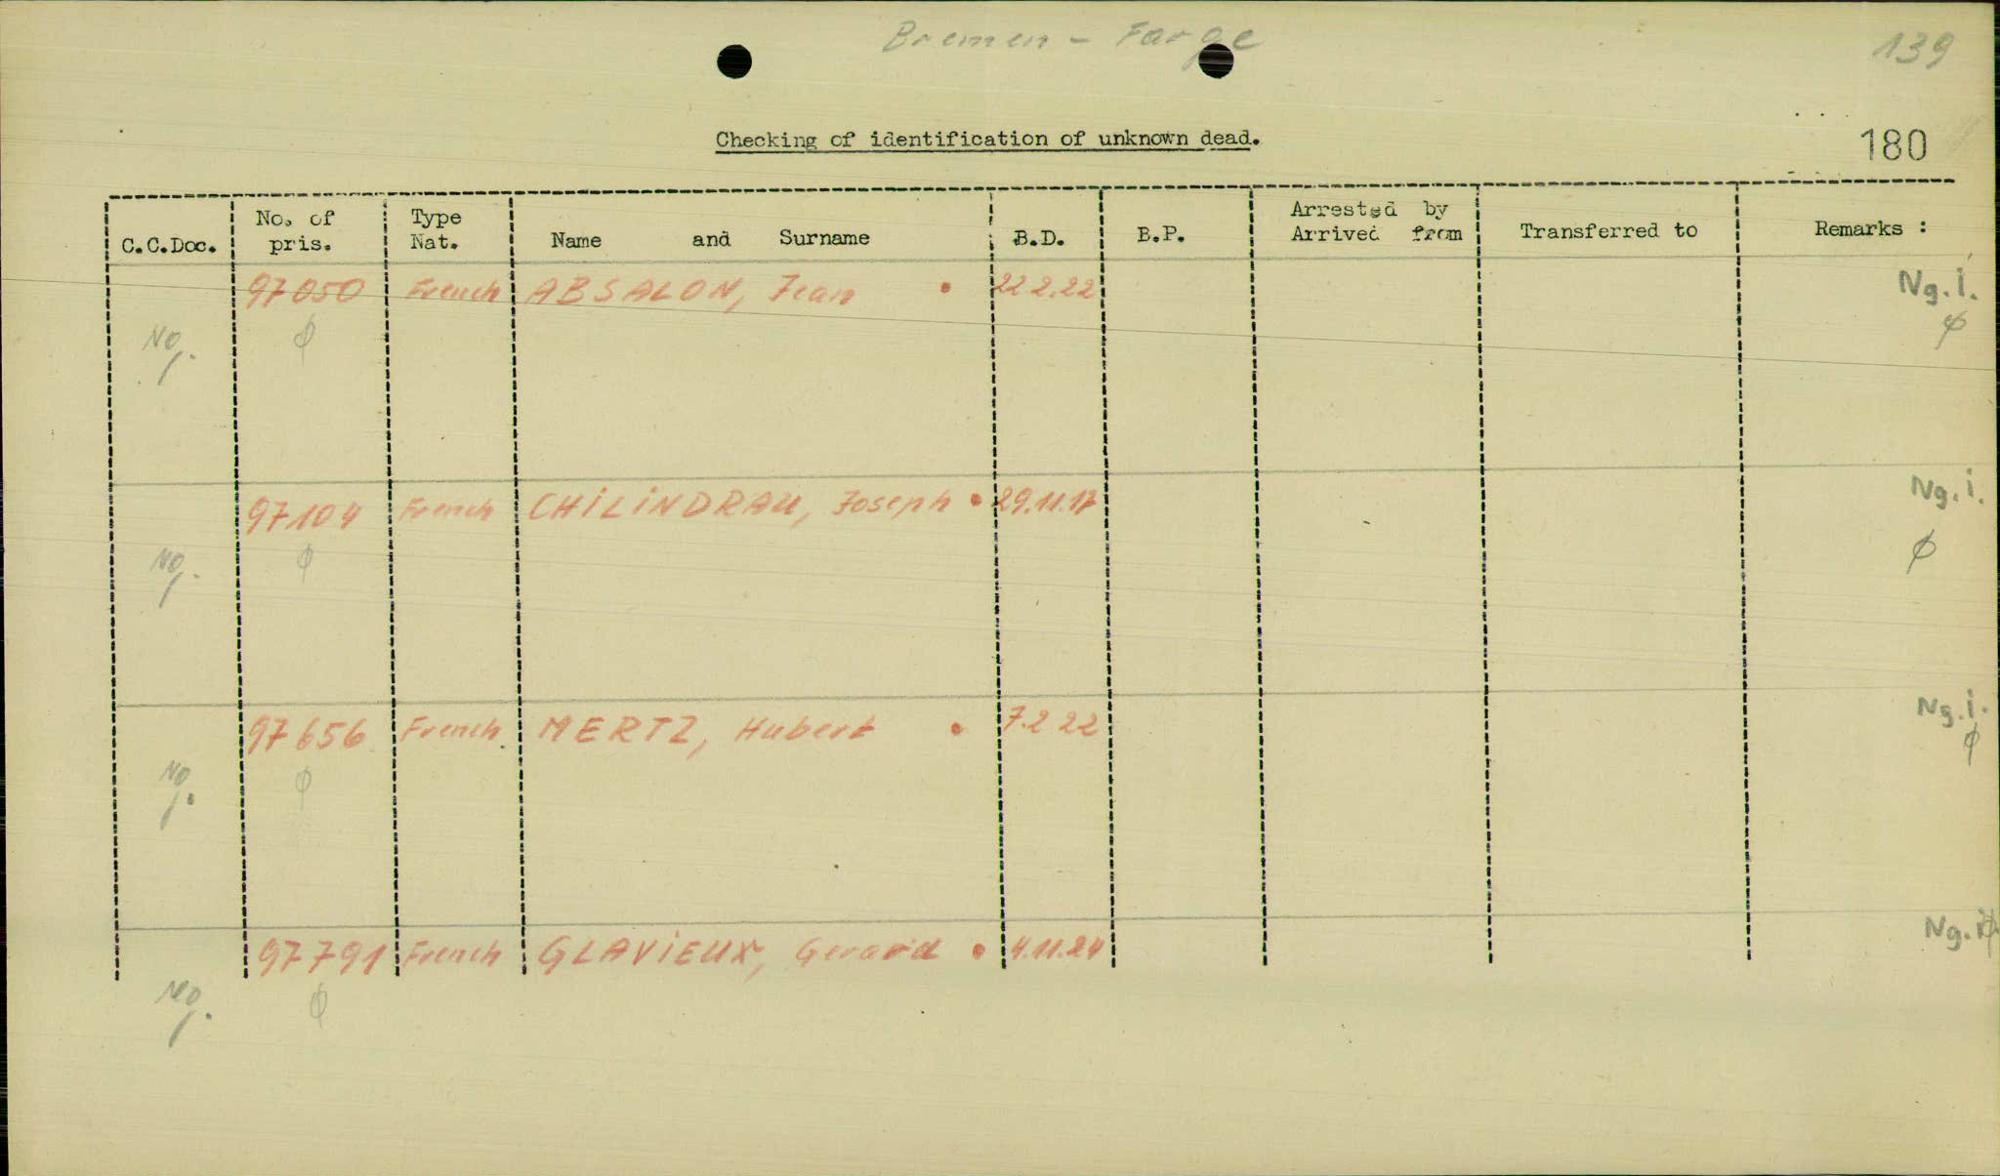 Bremen - Farge
139
Checking of identification of unknown dead.
180
C.C.Doc. No. of pris. Type Nat. Name and Surname B.D. B.P. Arrested by Arrived from Transferred to Remarks :
97050 French ABSALON, Jean • 22.2.22 Ng. i.
No. φ φ
97104 French CHiLiNDRAU, Joseph • 29.11.17 Ng. i.
No. φ φ
97656 French MERTZ, Hubert • 7.2.22 Ng. i.
No. φ φ
97791 French GLAViEUX, Gerard • 4.11.24 Ng. i. φ
No. φ